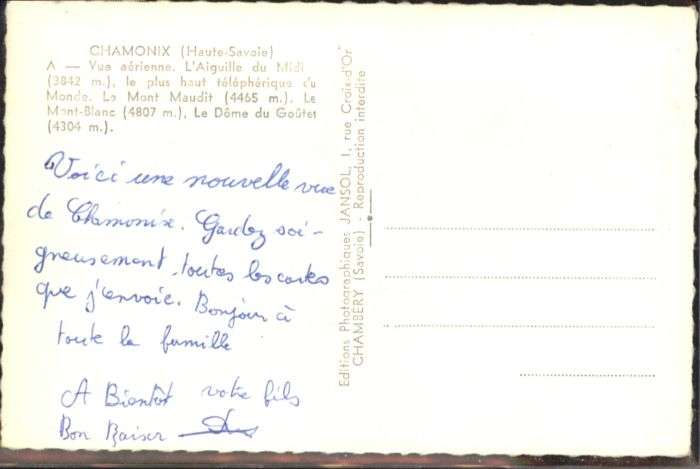 CHAMONIX (Haute-Savoie)
A — Vue aérienne. L'Aiguille du Midi
(3842 m.), le plus haut téléphérique du
Monde. Le Mont Maudit (4465 m.). Le
Mont-Blanc (4807 m.), Le Dôme du Goûter
(4304 m.).
Voici une nouvelle vue
de Chamonix. Gardez soi-
gneusement, toutes les cartes
que j'envoie. Bonjour à
toute la famille
A Bientôt votre fils
Bon Baiser
Editions Photographiques JANSOL, 1, rue Croix-d'Or
CHAMBERY (Savoie) - Reproduction interdite